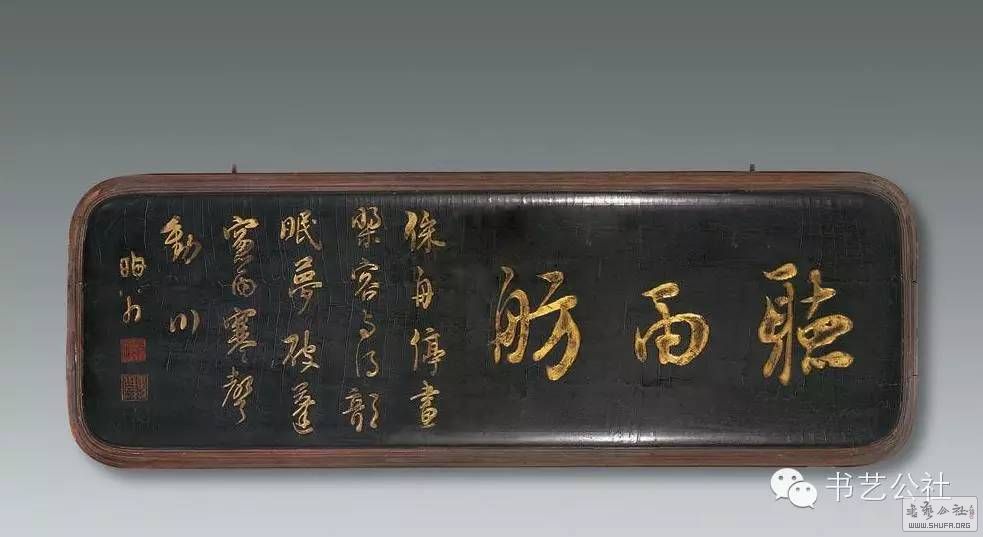 聽雨舫
綵舟停畫
槳容与得欹
眠夢破蓬
窗雨寒聲
動川
晦翁
书艺公社
书艺公社
WWW.SHUFA.ORG